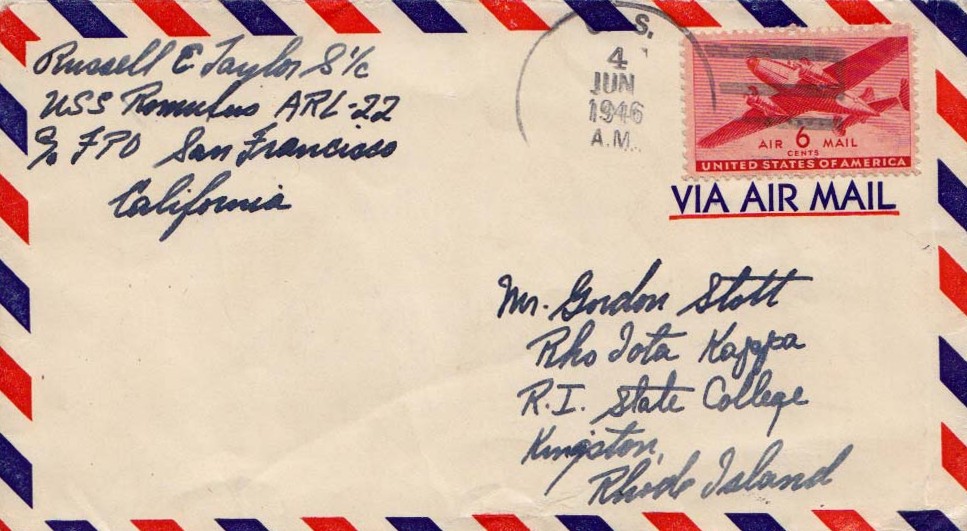 Russell E Taylor S1/c
USS Romulus ARL-22
c/o FPO San Francisco
California
S.
4
JUN
1946
A.M.
AIR 6 MAIL
CENTS
UNITED STATES OF AMERICA
VIA AIR MAIL
Mr. Gordon Stott
Rho Iota Kappa
R.I. State College
Kingston,
Rhode Island